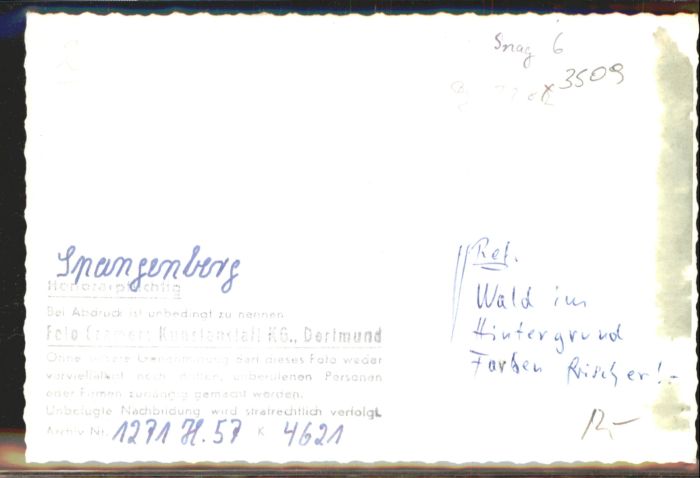 Snag 6
3509
Spangenberg
Honorarpflichtig
Bei Abdruck ist unbedingt zu nennen
Foto Cramers Kunstanstalt KG., Dortmund
Ohne unsere Genehmigung darf dieses Foto weder
vervielfältigt noch dritten, unberufenen Personen
oder Firmen zugängig gemacht werden.
Unbefugte Nachbildung wird strafrechtlich verfolgt.
Archiv Nr. 1271 H. 57 K 4621
Ret.
Wald im
Hintergrund
Farben frischer!-
12,-